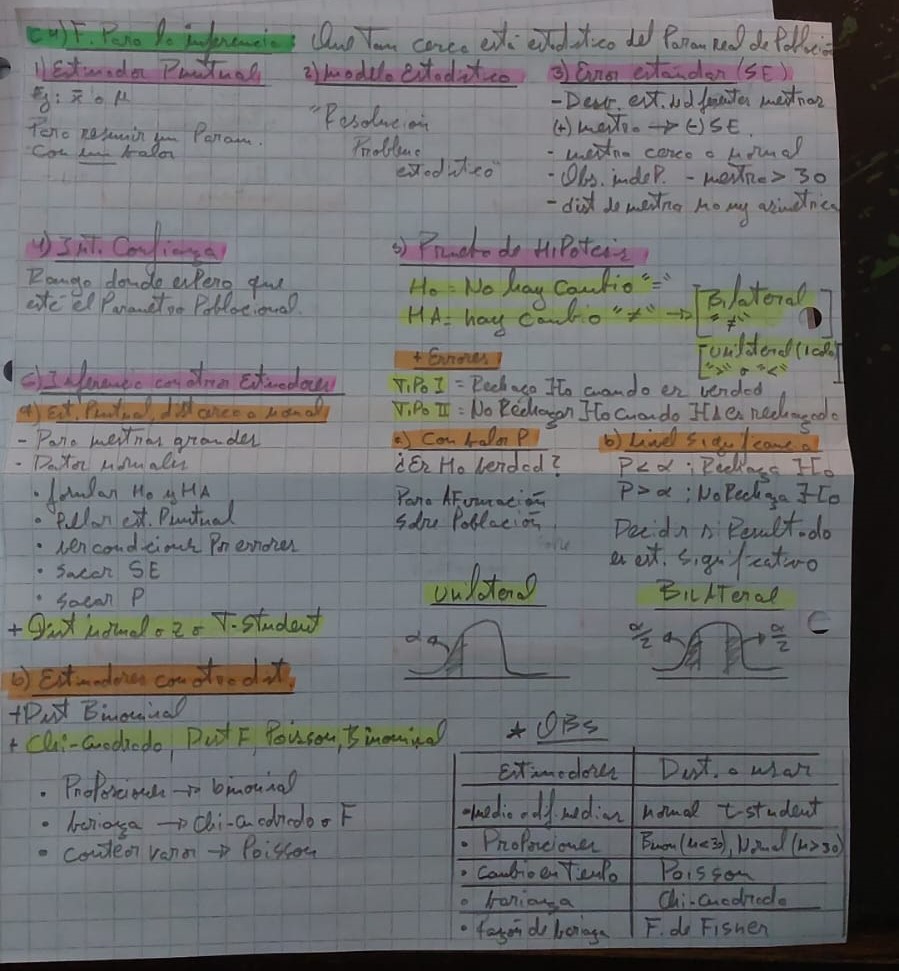 C4) F. Para la inferencia: Que tan cerca está estadístico del Param real de Población
1) Estimador Puntual
Ej: x̄ o μ
Para resumir un Param.
Con un valor
2) Modelo Estadístico
"Resolución
Problema
estadístico"
3) Error estandar (SE)
- Desv. est. de diferentes muestras
(+) muestra → (-) SE.
- muestra cerca a normal
- Obs. indeP. - muestra > 30
- dist de muestra no muy asimetrica
4) Int. Confianza
Rango donde espero que
esté el Parametro Poblacional.
5) Prueba de HiPotesis
Ho = No hay Cambio "="
HA = hay cambio "≠" → [Bilateral
"≠"]
[Unilateral (1 cola)
">" o "<"]
+ Errores
TiPo I = Rechaza Ho cuando es verdad
TiPo II = No Rechazar Ho cuando HA es rechazada
a) Con valor P
¿Es Ho verdad?
Para AFirmación
sobre Población
b) Nivel Significancia
P < α ; Rechaza Ho
P > α ; No Rechaza Ho
Decidir si Resultado
es est. significativo
Unilateral
α
BiLATeral
α/2
α/2
6) Inferencia con otros Estimadores
a) Est. Puntual, dist cerca a normal
- Para muestras grandes
- Datos normales
• formular Ho y HA
• Pillar est. Puntual
• ver condiciones Por errores
• sacar SE
• sacar P
+ Dist normal o z o T-Student
b) Estimadores con otra dist.
+ Dist Binominal
+ Chi-Cuadrado, Dist F, Poisson, Binominal
• Proporciones → binominal
• varianza → Chi-cuadrado o F
• conteos varios → Poisson
* OBS
Estimadores | Dist. a usar
• media o dif. medias | normal t-student
• Proporciones | Binom (n<30), Normal (n>30)
• cambio en Tiempo | Poisson
• varianza | Chi-Cuadrado
• razón de varianza | F. de Fisher